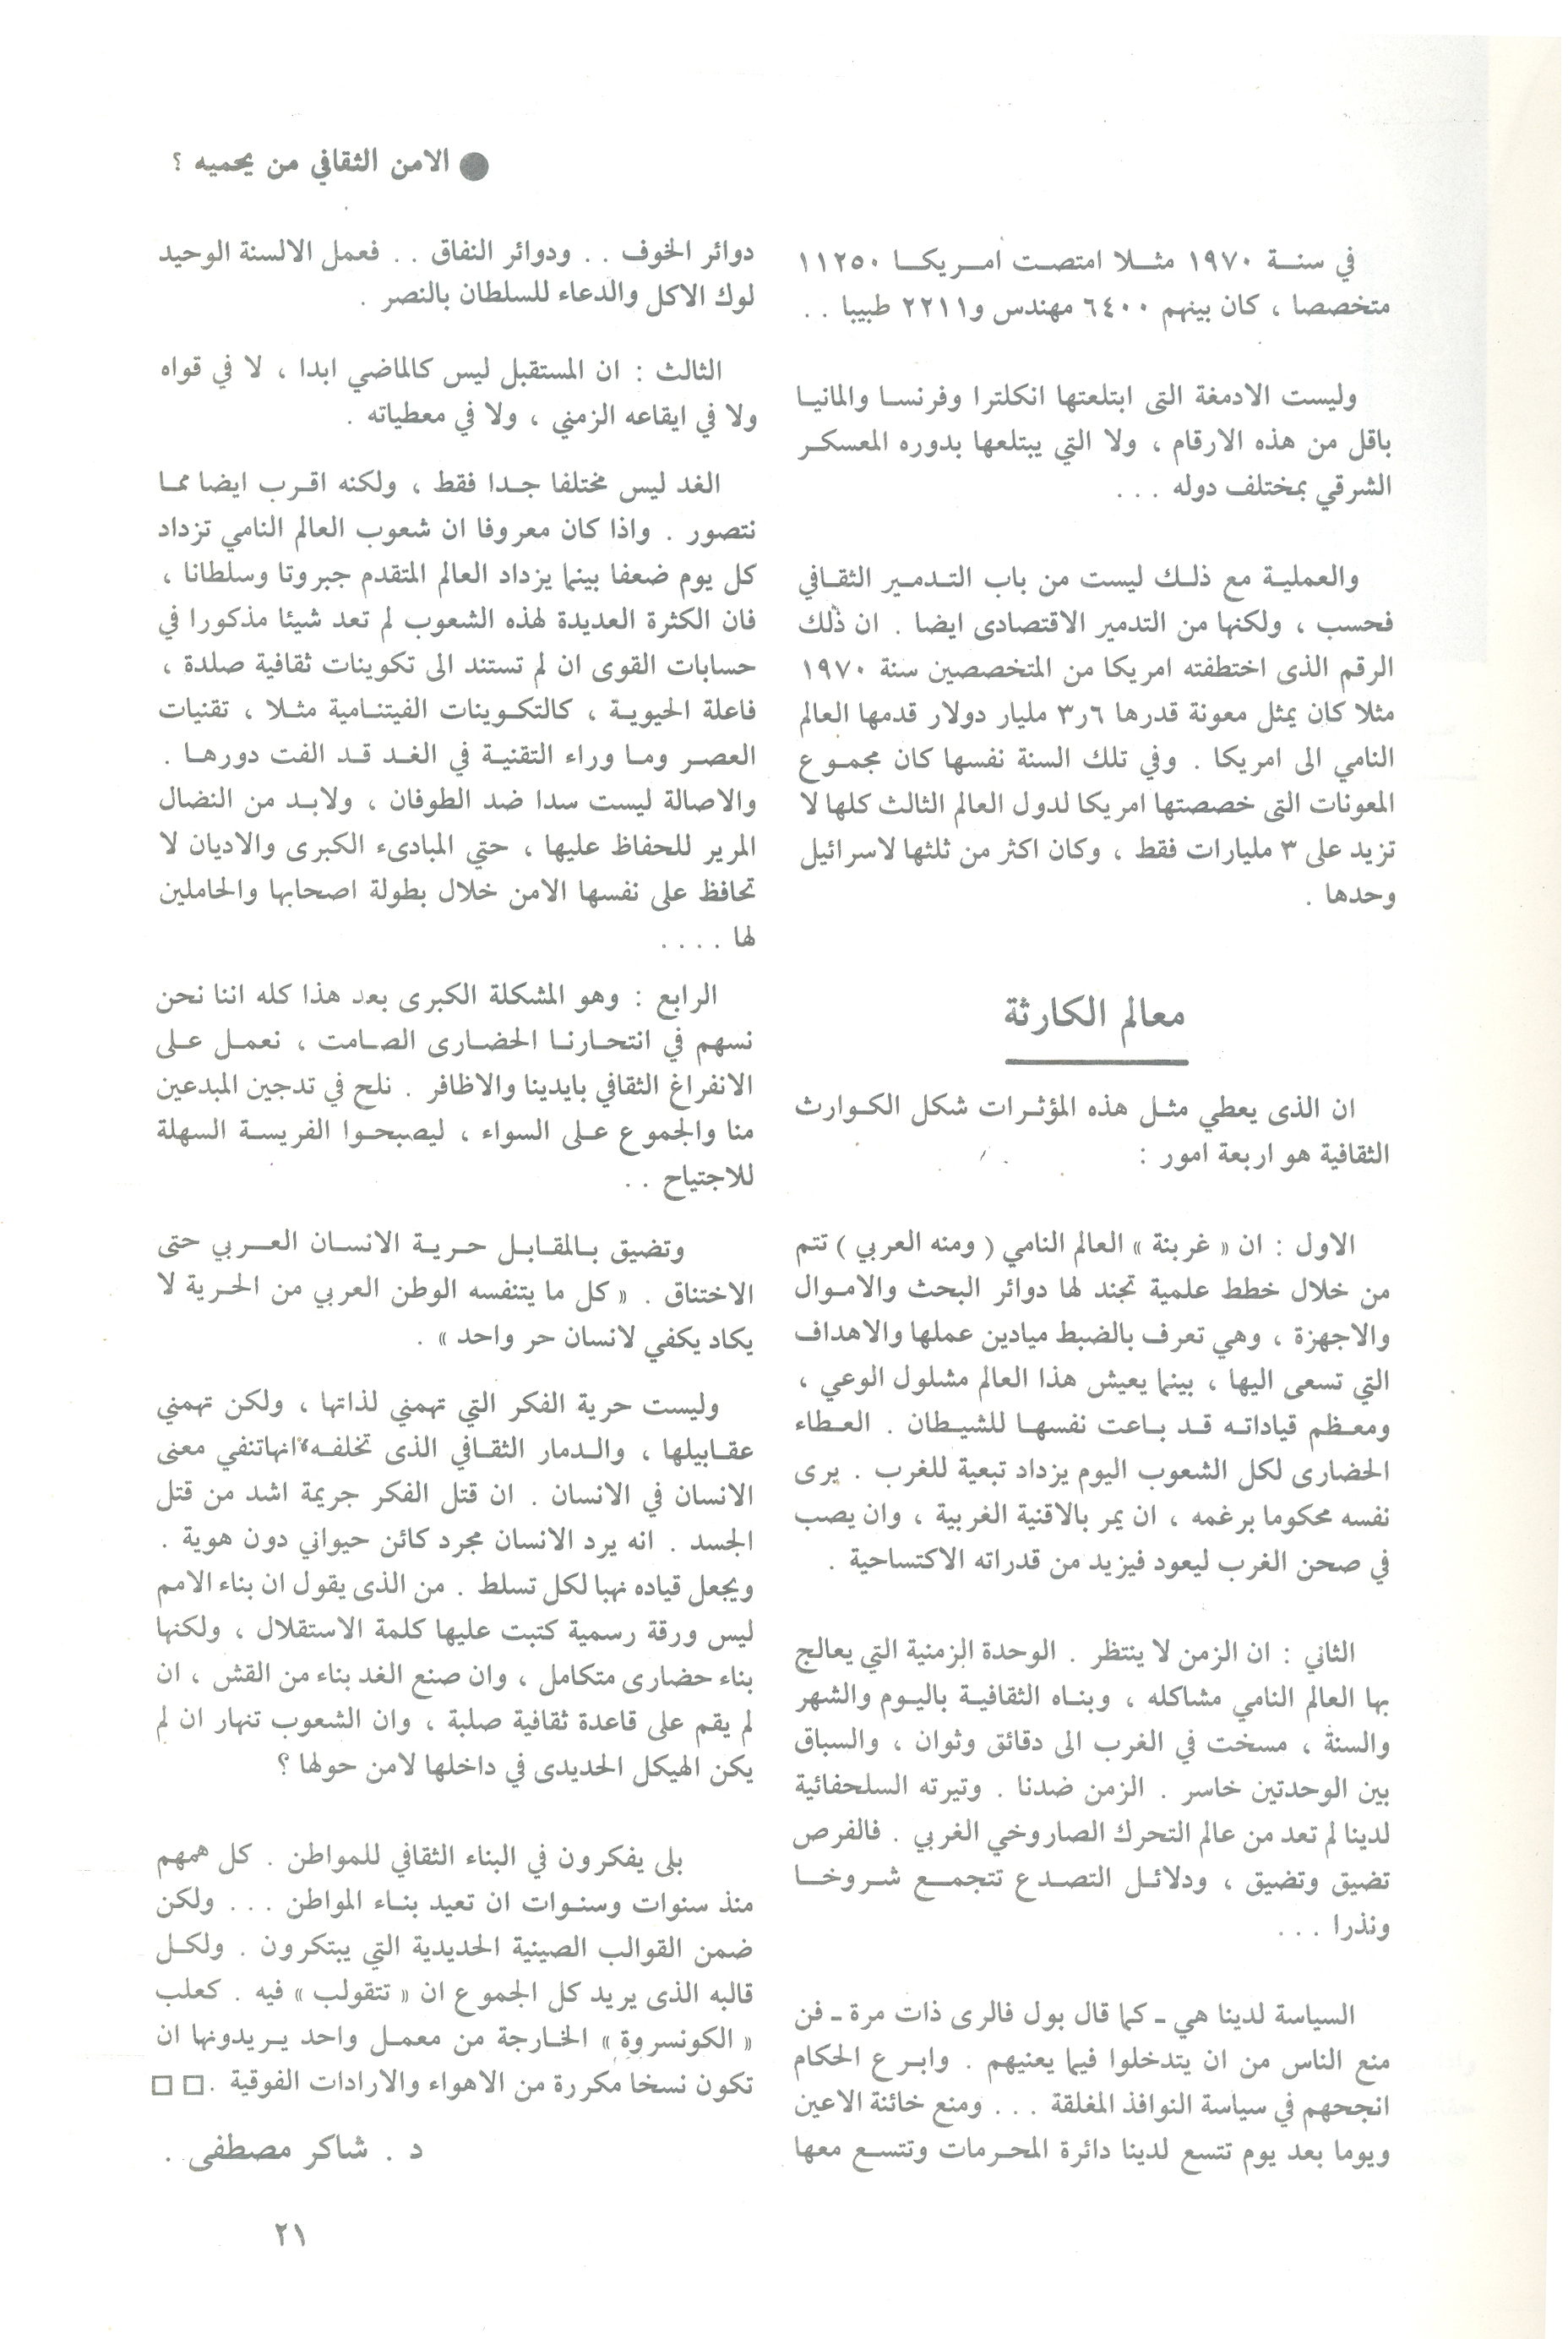 ● الامن الثقافي من يحميه ؟
في سنة ١٩٧٠ مثلا امتصت امريكا ١١٢٥٠
متخصصا ، كان بينهم ٦٤٠٠ مهندس و٢٢١١ طبيبا . .
وليست الادمغة التى ابتلعتها انكلترا وفرنسا والمانيا
باقل من هذه الارقام ، ولا التي يبتلعها بدوره المعسكر
الشرقي بمختلف دوله . . .
والعملية مع ذلك ليست من باب التدمير الثقافي
فحسب ، ولكنها من التدمير الاقتصادى ايضا . ان ذلك
الرقم الذى اختطفته امريكا من المتخصصين سنة ١٩٧٠
مثلا كان يمثل معونة قدرها ٦ر٣ مليار دولار قدمها العالم
النامي الى امريكا . وفي تلك السنة نفسها كان مجموع
المعونات التى خصصتها امريكا لدول العالم الثالث كلها لا
تزيد على ٣ مليارات فقط ، وكان اكثر من ثلثها لاسرائيل
وحدها .
معالم الكارثة
ان الذى يعطي مثل هذه المؤثرات شكل الكوارث
الثقافية هو اربعة امور :
الاول : ان « غربنة » العالم النامي ( ومنه العربي ) تتم
من خلال خطط علمية تجند لها دوائر البحث والاموال
والاجهزة ، وهي تعرف بالضبط ميادين عملها والاهداف
التي تسعى اليها ، بينما يعيش هذا العالم مشلول الوعي ،
ومعظم قياداته قد باعت نفسها للشيطان . العطاء
الحضارى لكل الشعوب اليوم يزداد تبعية للغرب . يرى
نفسه محكوما برغمه ، ان يمر بالاقنية الغربية ، وان يصب
في صحن الغرب ليعود فيزيد من قدراته الاكتساحية .
الثاني : ان الزمن لا ينتظر . الوحدة الزمنية التي يعالج
بها العالم النامي مشاكله ، وبناه الثقافية باليوم والشهر
والسنة ، مسخت في الغرب الى دقائق وثوان ، والسباق
بين الوحدتين خاسر . الزمن ضدنا . وتيرته السلحفائية
لدينا لم تعد من عالم التحرك الصاروخي الغربي . فالفرص
تضيق وتضيق ، ودلائل التصدع تتجمع شروخا
ونذرا . . .
السياسة لدينا هي ـ كما قال بول فالرى ذات مرة ـ فن
منع الناس من ان يتدخلوا فيما يعنيهم . وابرع الحكام
انجحهم في سياسة النوافذ المغلقة . . . ومنع خائنة الاعين
ويوما بعد يوم تتسع لدينا دائرة المحرمات وتتسع معها
دوائر الخوف . . ودوائر النفاق . . فعمل الالسنة الوحيد
لوك الاكل والدعاء للسلطان بالنصر .
الثالث : ان المستقبل ليس كالماضي ابدا ، لا في قواه
ولا في ايقاعه الزمني ، ولا في معطياته .
الغد ليس مختلفا جدا فقط ، ولكنه اقرب ايضا مما
نتصور . واذا كان معروفا ان شعوب العالم النامي تزداد
كل يوم ضعفا بينما يزداد العالم المتقدم جبروتا وسلطانا ،
فان الكثرة العديدة لهذه الشعوب لم تعد شيئا مذكورا في
حسابات القوى ان لم تستند الى تكوينات ثقافية صلدة ،
فاعلة الحيوية ، كالتكوينات الفيتنامية مثلا ، تقنيات
العصر وما وراء التقنية في الغد قد الفت دورها .
والاصالة ليست سدا ضد الطوفان ، ولابد من النضال
المرير للحفاظ عليها ، حتي المبادىء الكبرى والاديان لا
تحافظ على نفسها الامن خلال بطولة اصحابها والحاملين
لها . . . .
الرابع : وهو المشكلة الكبرى بعد هذا كله اننا نحن
نسهم في انتحارنا الحضارى الصامت ، نعمل على
الانفراغ الثقافي بايدينا والاظافر . نلح في تدجين المبدعين
منا والجموع على السواء ، ليصبحوا الفريسة السهلة
للاجتياح . .
وتضيق بالمقابل حرية الانسان العربي حتى
الاختناق . « كل ما يتنفسه الوطن العربي من الحرية لا
يكاد يكفي لانسان حر واحد » .
وليست حرية الفكر التي تهمني لذاتها ، ولكن تهمني
عقابيلها ، والدمار الثقافي الذى تخلفه انهاتنفي معنى
الانسان في الانسان . ان قتل الفكر جريمة اشد من قتل
الجسد . انه يرد الانسان مجرد كائن حيواني دون هوية .
ويجعل قياده نهبا لكل تسلط . من الذى يقول ان بناء الامم
ليس ورقة رسمية كتبت عليها كلمة الاستقلال ، ولكنها
بناء حضارى متكامل ، وان صنع الغد بناء من القش ، ان
لم يقم على قاعدة ثقافية صلبة ، وان الشعوب تنهار ان لم
يكن الهيكل الحديدى في داخلها لامن حولها ؟
بلى يفكرون في البناء الثقافي للمواطن . كل همهم
منذ سنوات وسنوات ان تعيد بناء المواطن . . . ولكن
ضمن القوالب الصينية الحديدية التي يبتكرون . ولكل
قالبه الذى يريد كل الجموع ان « تتقولب » فيه . كعلب
« الكونسروة » الخارجة من معمل واحد يريدونها ان
تكون نسخا مكررة من الاهواء والارادات الفوقية . □ □
د . شاكر مصطفى .
٢١